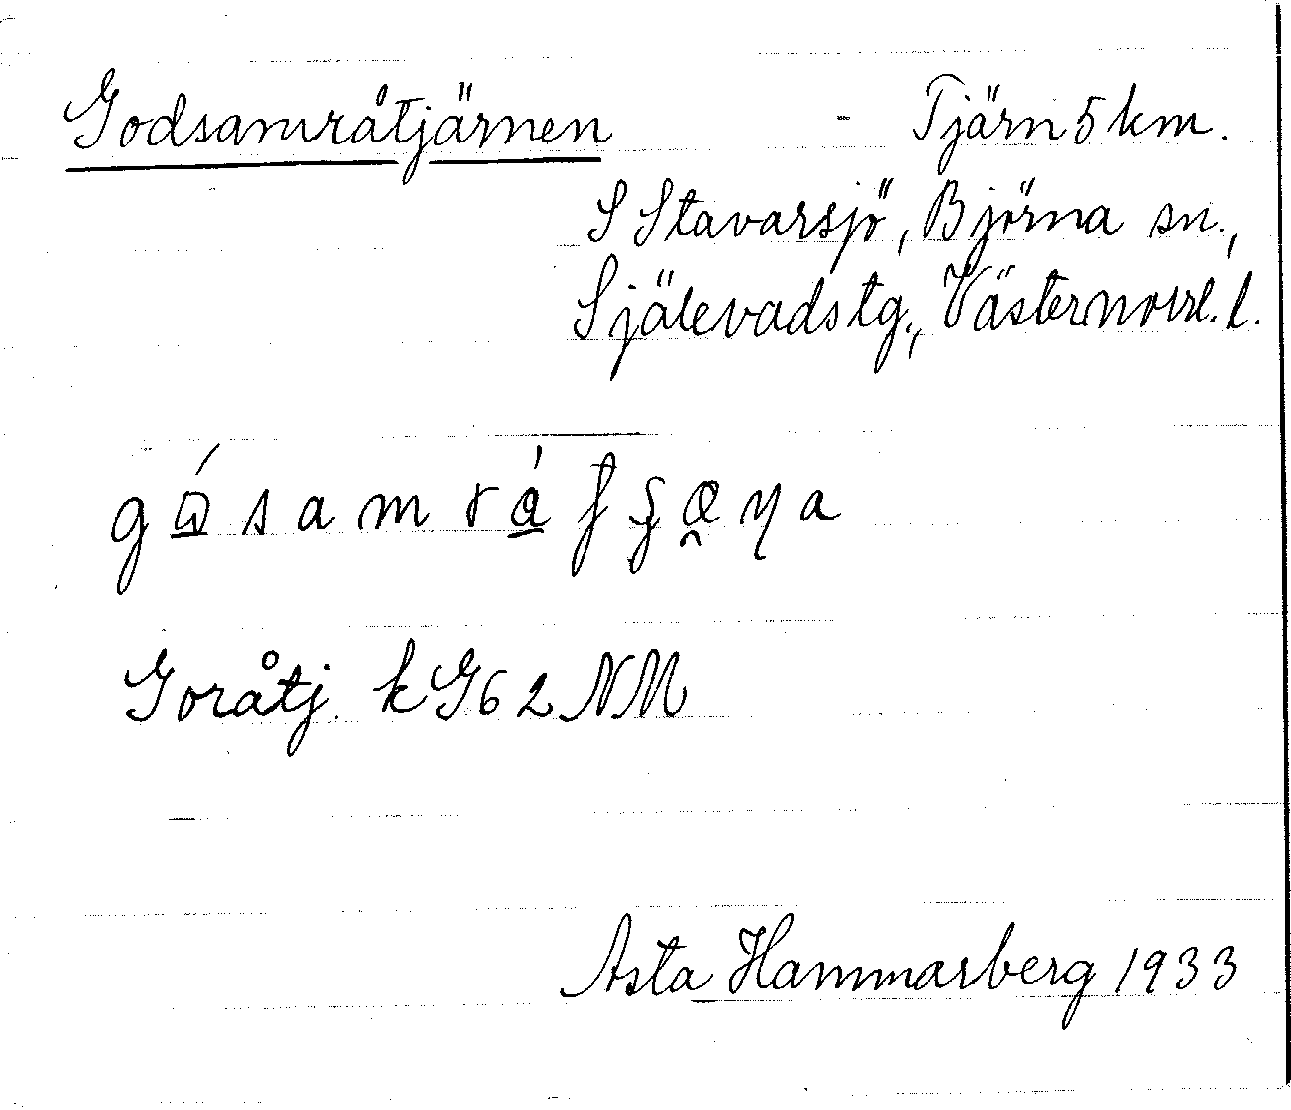 Godsamråtjärnen - Tjärn 5 km.
S Stavarsjö, Björna sn.,
Själevads tg., Västernorrl. l.
Goråtj. k G62 NM
Asta Hammarberg 1933